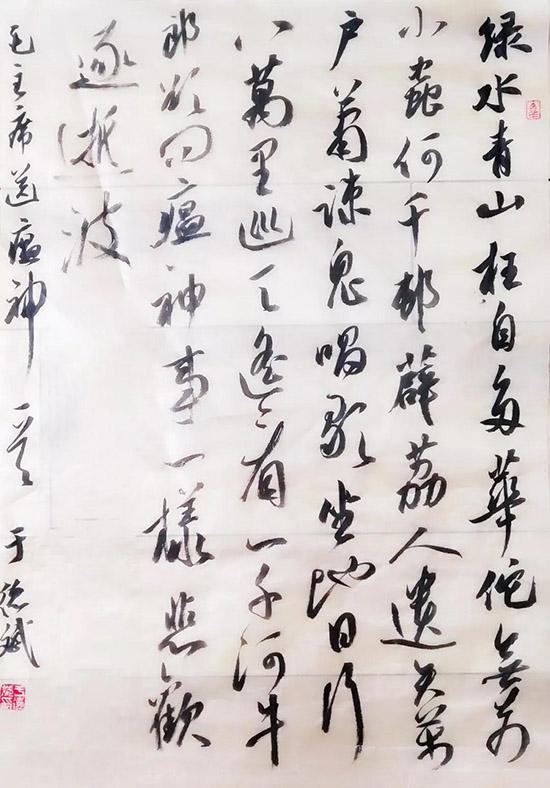 绿水青山枉自多華佗無奈
小蟲何千邨薜荔人遺矢萬
户蕭疎鬼唱歌坐地日行
八萬里巡天遥看一千河牛
郎欲问瘟神事一樣悲歡
逐逝波
毛主席送瘟神一首 于德斌